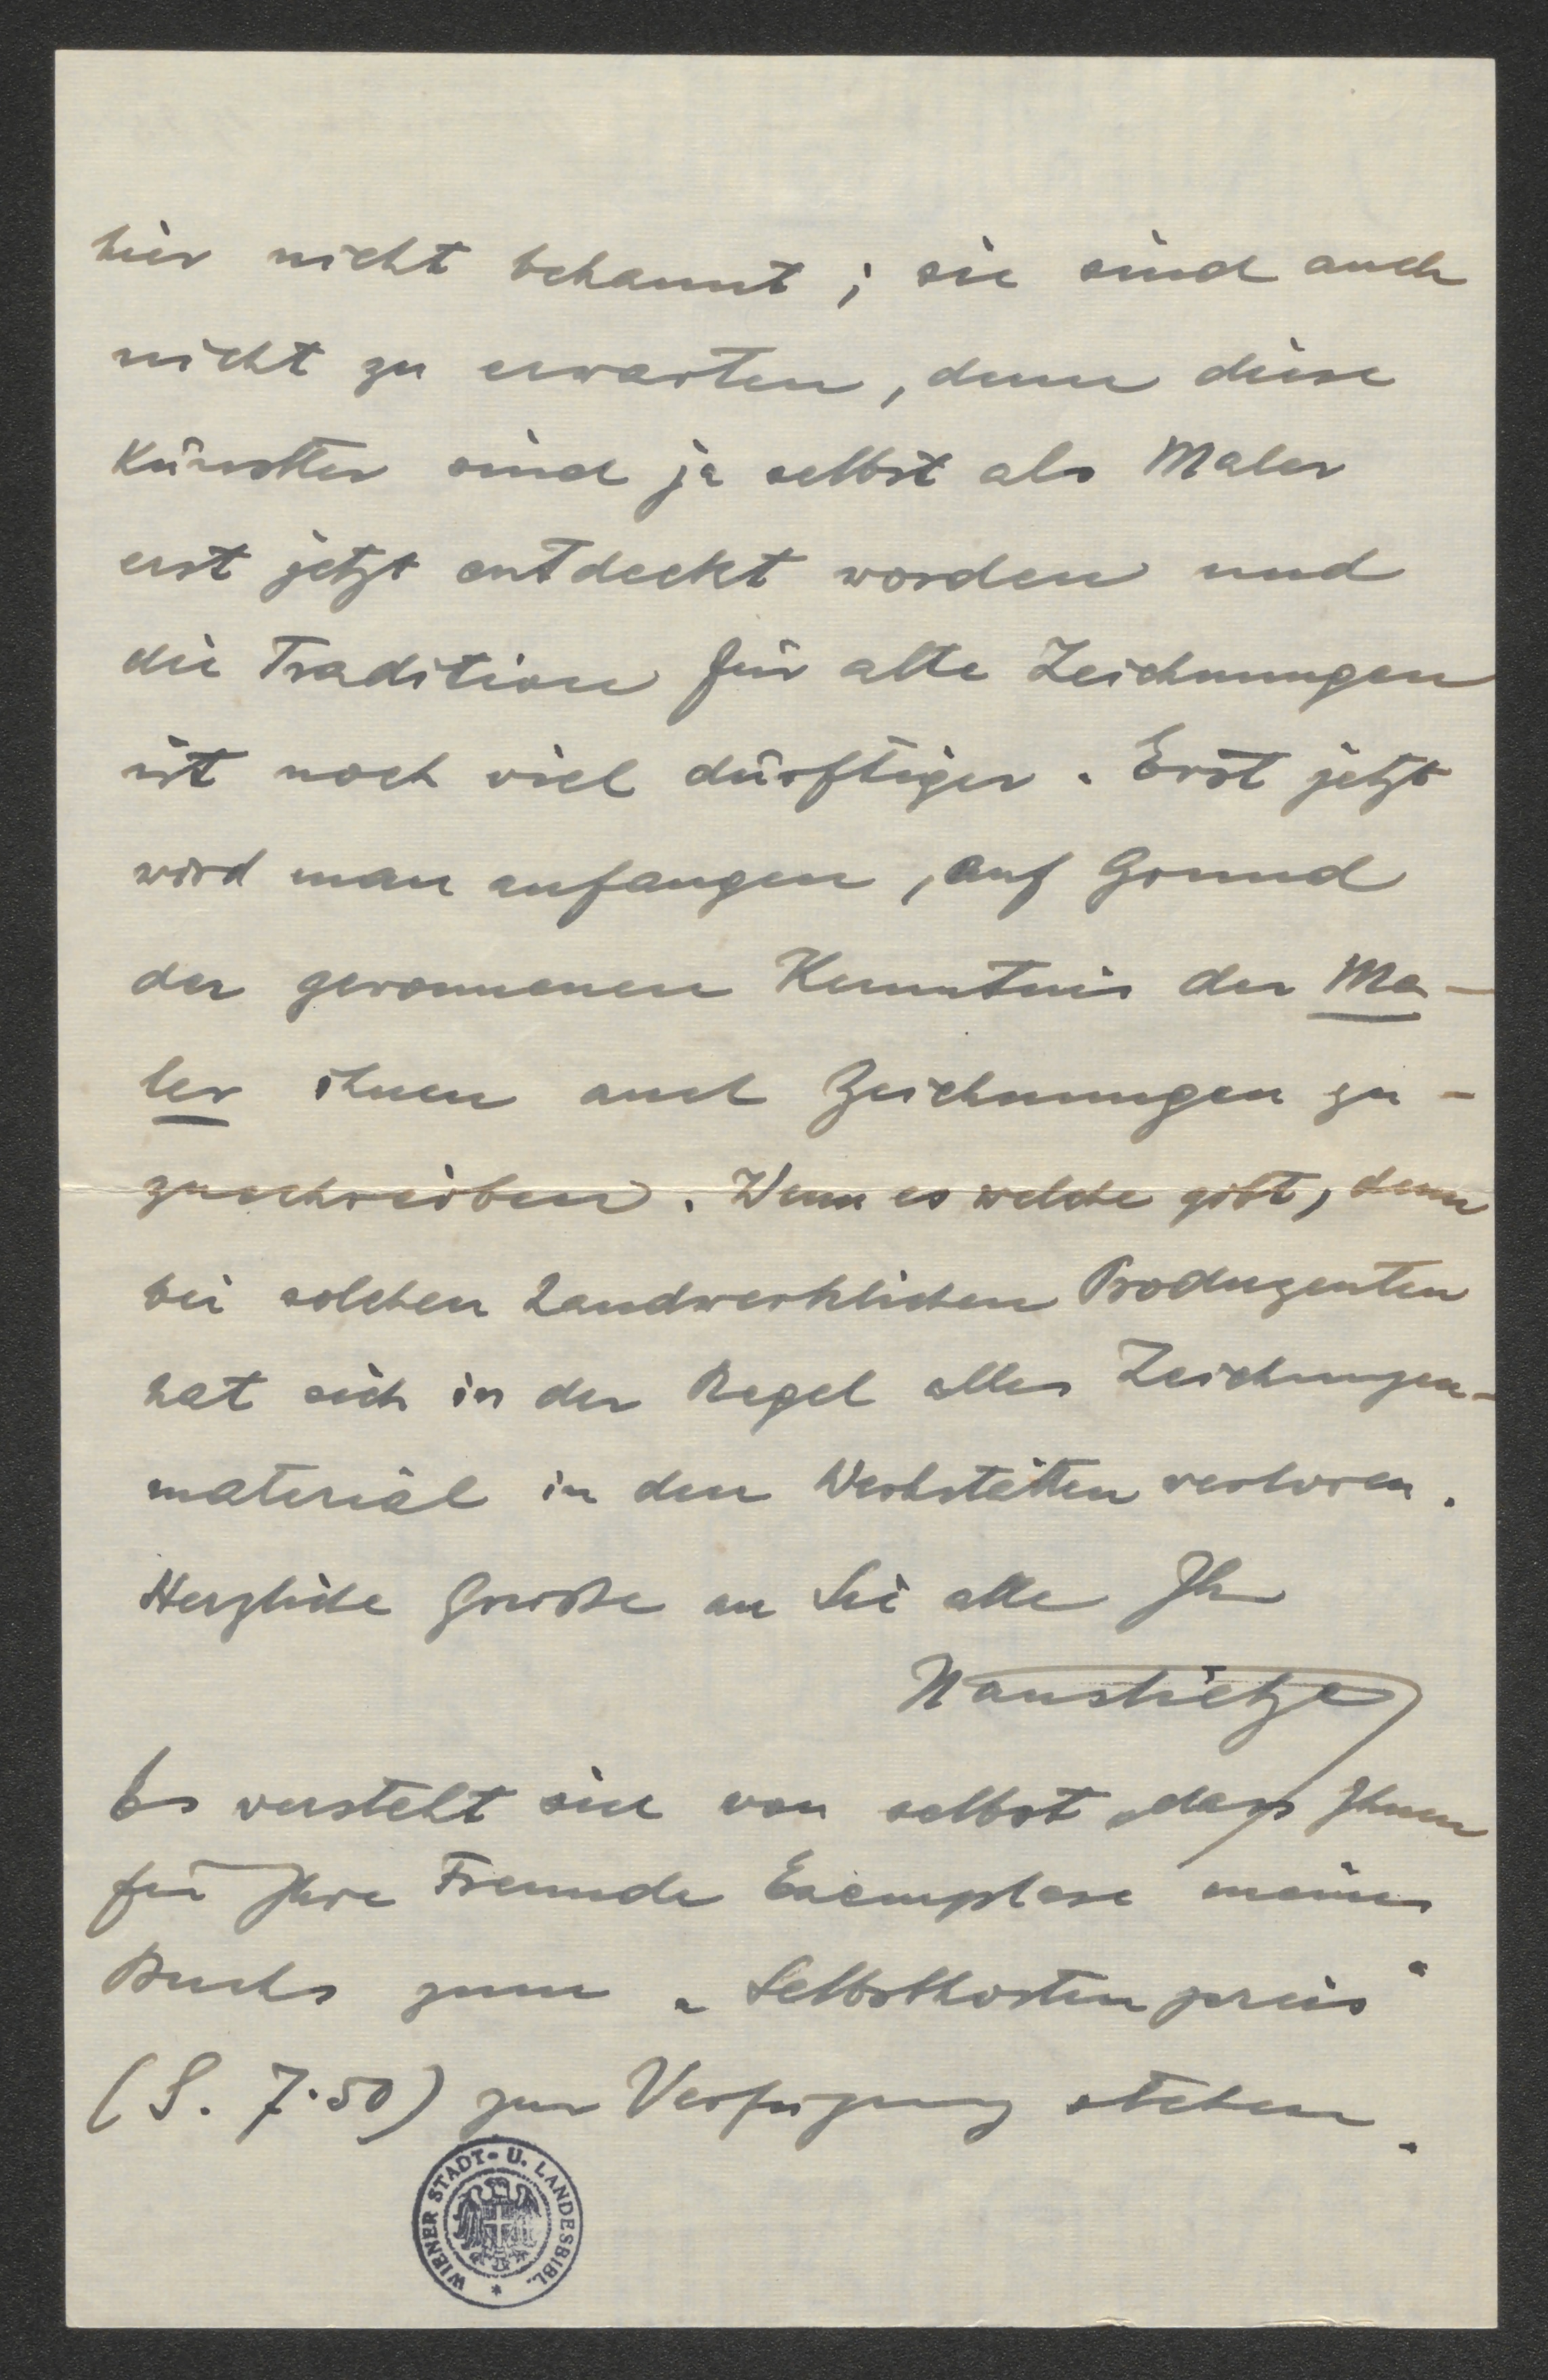 hier nicht bekannt; sie sind auch
nicht zu erwarten, denn diese
Künstler sind ja selbst als Maler
erst jetzt entdeckt worden und
die Tradition für alte Zeichnungen
ist noch viel dürftiger. Erst jetzt
wird man anfangen, auf Grund
der gewonnenen Kenntnis der Ma-
ler ihnen auch Zeichnungen zu-
zuschreiben. Wenn es welche gibt, denn
bei solchen handwerklichen Produzenten
hat sich in der Regel alles Zeichnungen-
material in den Werkstätten verloren.
Herzliche Grüße an Sie alle Ihr
Hanstietze
Es versteht sich von selbst, dass Ihnen
für Ihre Freunde Exemplare meines
Buchs zum „Selbstkostenpreis“
(S. 7·50) zur Verfügung stehen.
WIENER STADT- U. LANDESBIBL.